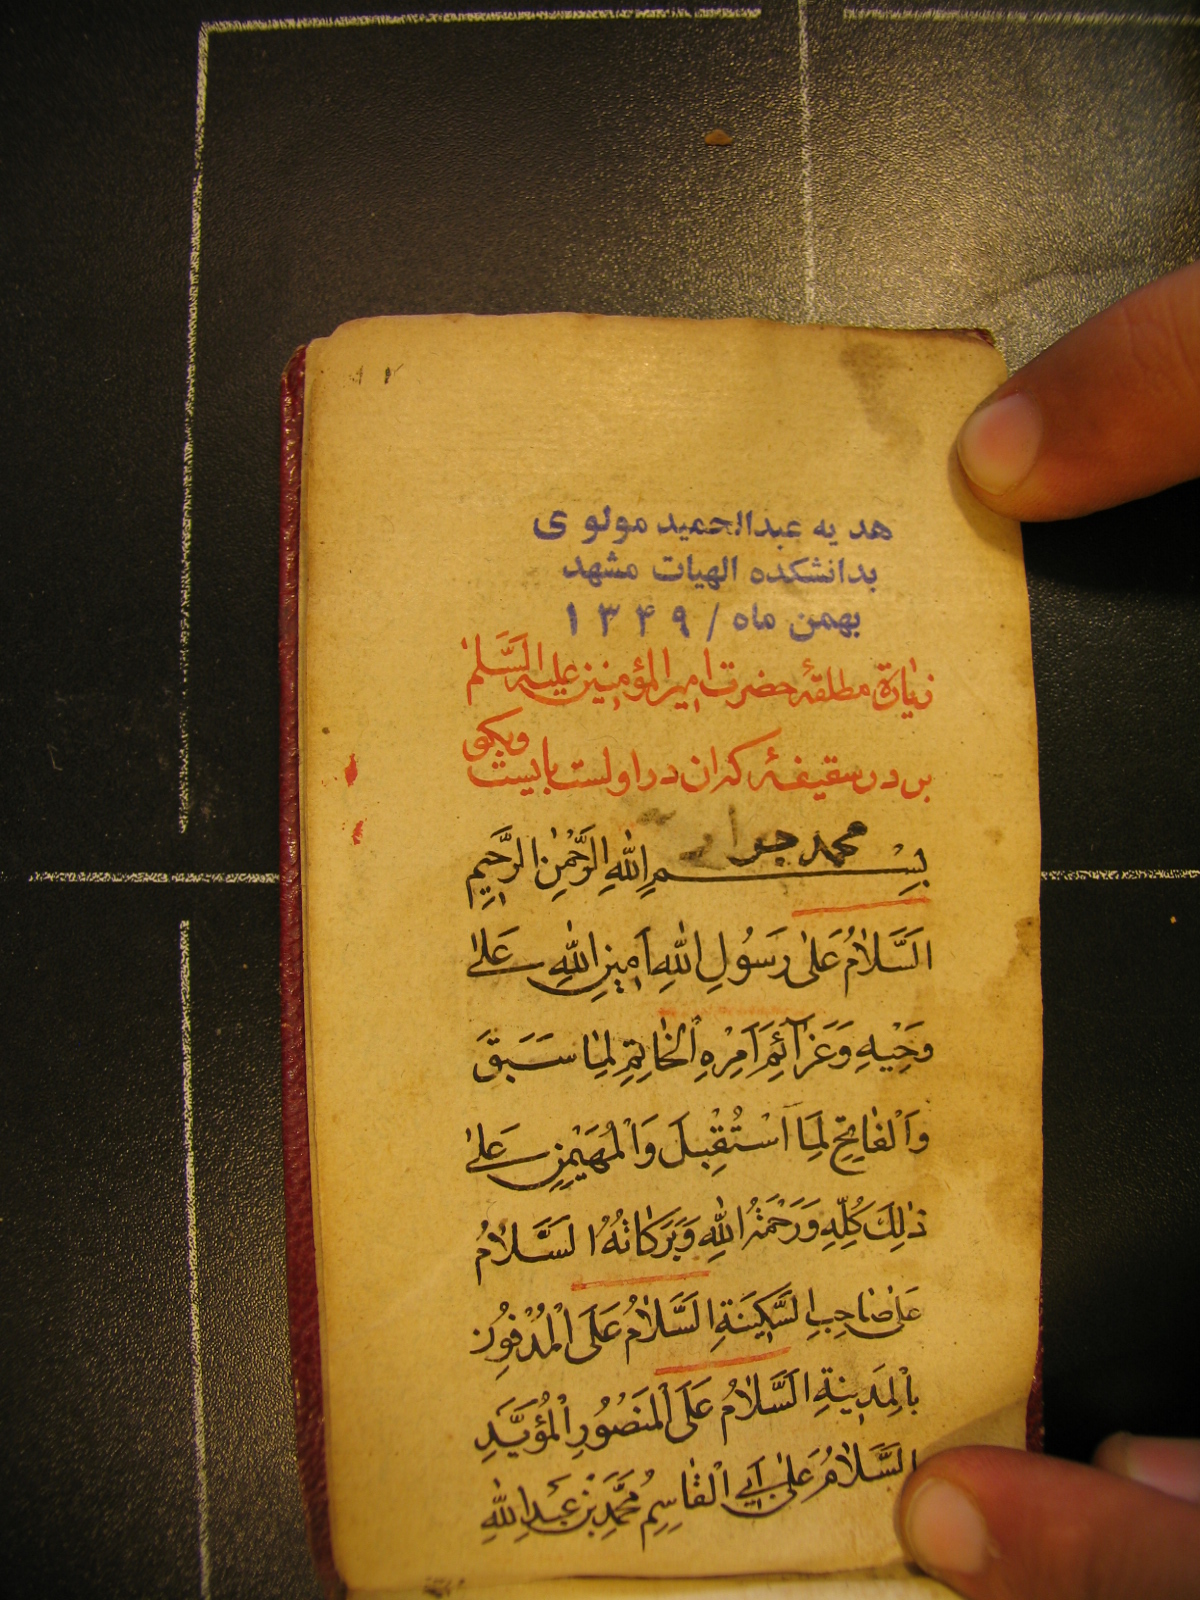 هدیه عبدالحمید مولوی
بدانشکده الهیات مشهد
بهمن ماه / ۱۳۴۹
زیارة مطلقهٔ حضرت امیرالمؤمنین علیه السَّلٰم
بر در سقیفهٔ که ان در اول است بایست وبکوی
محمد جواد
بِسْمِ اللّٰهِ الرَّحْمٰنِ الرَّحِيمِ
اَلسَّلٰامُ عَلىٰ رَسُولِ اللّٰهِ اَمٖينِ اللّٰهِ عَلىٰ
وَحْيِهِ وَعَزٰآئِمِ اَمْرِهِ الْخٰاتِمِ لِمٰا سَبَقَ
وَالْفٰاتِحِ لِمَا اسْتُقْبِلَ وَالْمُهَيْمِنِ عَلىٰ
ذٰلِكَ كُلِّهِ وَرَحْمَةُ اللّٰهِ وَبَرَكٰاتُهُ السَّلٰامُ
عَلىٰ صٰاحِبِ السَّكٖينَةِ السَّلٰامُ عَلَى الْمَدْفُونِ
بِالْمَدٖينَةِ السَّلٰامُ عَلَى الْمَنْصُورِ الْمُؤَيَّدِ
السَّلٰامُ عَلىٰ اَبِى الْقٰاسِمِ مُحَمَّدِ بْنِ عَبْدِ اللّٰهِ